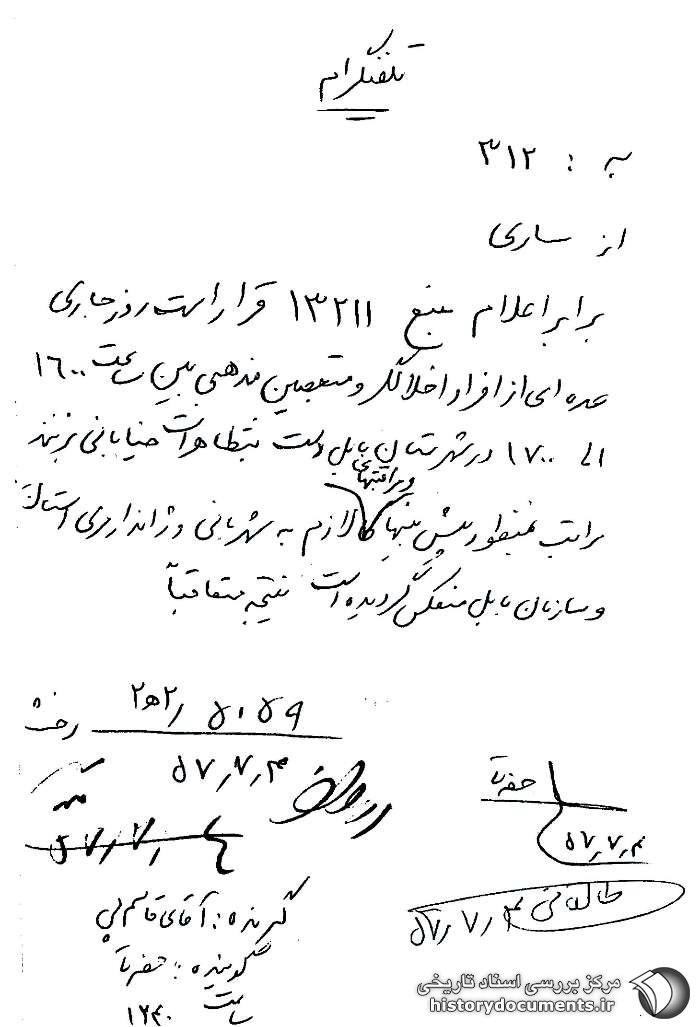 تلفنگرام
به : ۳۱۲
از ساری
برابر اعلام منبع ۱۳۲۱۱ قرار است روز جاری
عده‌ای از افراد اخلالگر و متعصبین مذهبی بین ساعت ۱۶۰۰
الی ۱۷۰۰ در شهرستان بابل دست بتظاهرات خیابانی بزنند
مراتب بمنظور پیش بینیها و مراقبتهای لازم به شهربانی و ژاندارمری استان
و سازمان بابل منعکس گردیده است نتیجه متعاقباً
۵۰۵۹ / ۲ﻫ۲
۵۷٫۷٫۴
۵۷٫۷٫۴
حضرتی
۵۷٫۷٫۴
طالقانی ۵۷٫۷٫۴
گیرنده : آقای قاسم
گوینده : حضرتی
ساعت ۱۲۴۰
مرکز بررسی اسناد تاریخی
historydocuments.ir